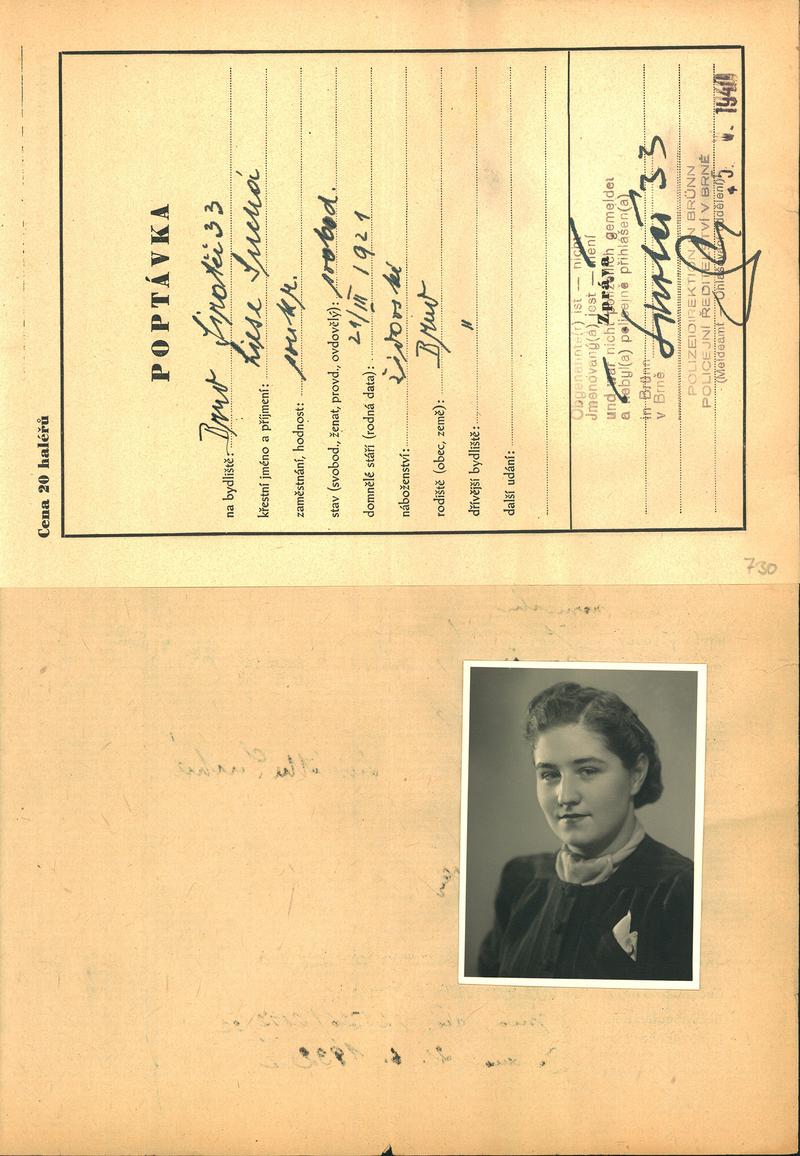 Cena 20 haléřů
POPTÁVKA
na bydliště: Brno Široká 33
křestní jméno a příjmení: Liese Suchá
zaměstnání, hodnost: soukr.
stav (svobod., ženat, provd., ovdovělý): svobod.
domnělé stáří (rodná data): 21/III 1921
náboženství: židovské
rodiště (obec, země): Brno
dřívější bydliště: "
další udání:
Zpráva
Obgenannte(r) ist — nicht
Jmenovaný(á) jest — není
und war nicht polizeilich gemeldet
a nebyl(a) policejně přihlášen(a)
in Brünn
v Brně Široká 33
POLIZEIDIREKTION IN BRÜNN
POLICEJNÍ ŘEDITELSTVÍ V BRNĚ
(Meldeamt — Ohlašovací oddělení)
5. V. 1940
730